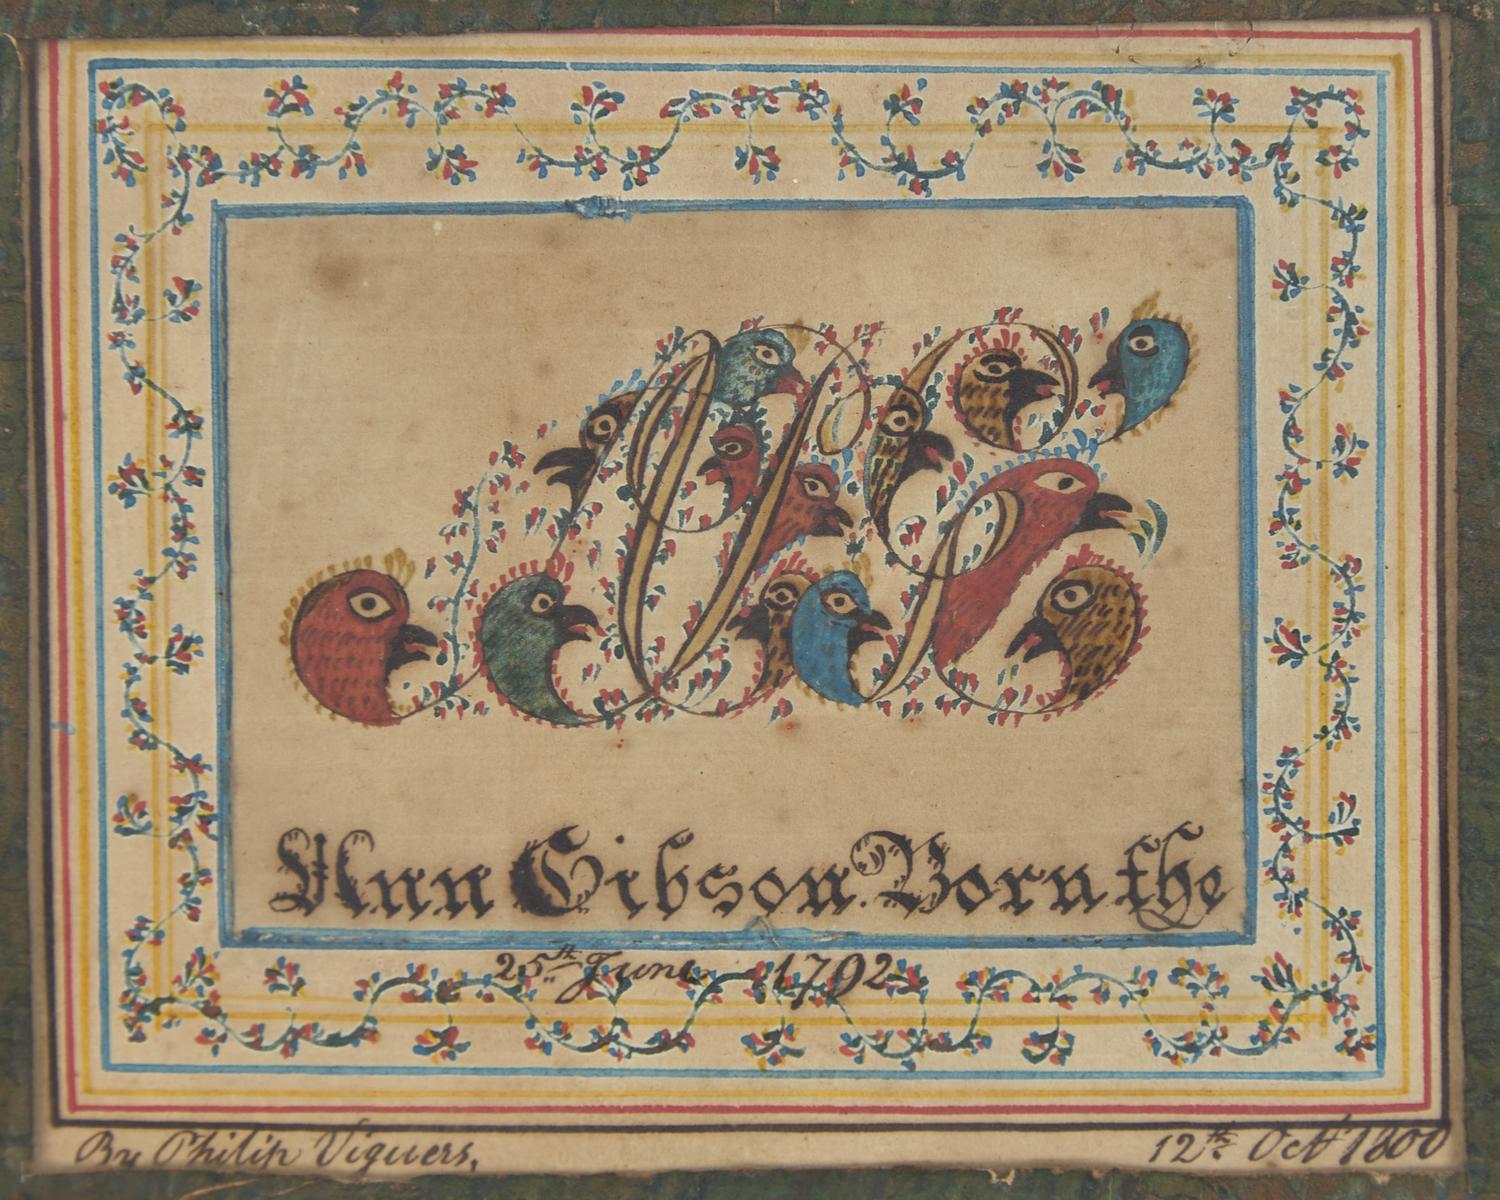 AG
Ann Gibson Born the
25th June 1792
By Philip Viguers,
12th Octr 1800